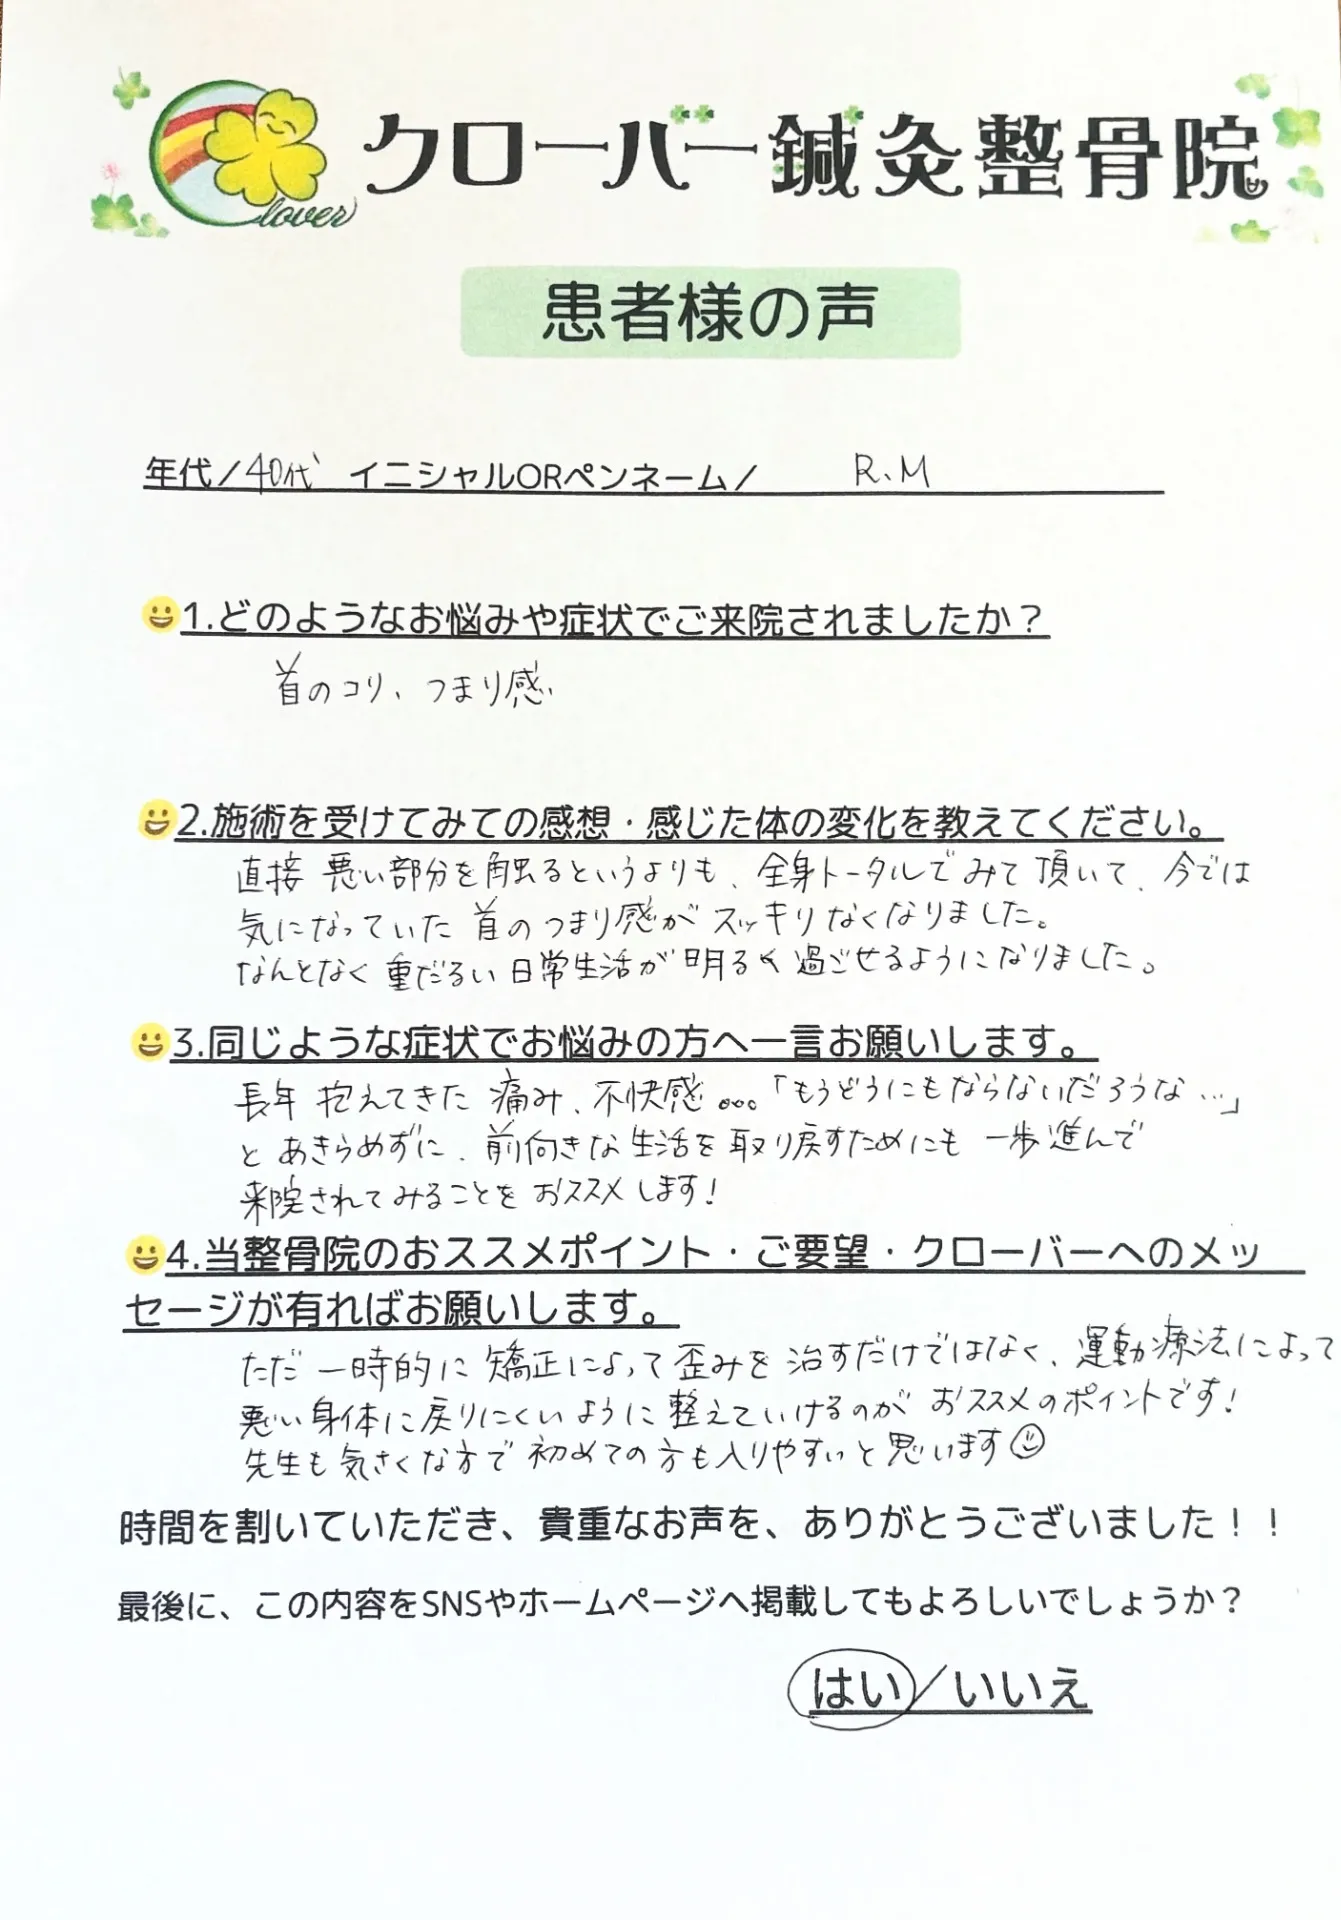 Clover
クローバー鍼灸整骨院
患者様の声
年代/40代 イニシャルORペンネーム/ R.M
1.どのようなお悩みや症状でご来院されましたか？
首のコリ、つまり感
2.施術を受けてみての感想・感じた体の変化を教えてください。
直接 悪い部分を触るというよりも、全身トータルでみて頂いて、今では
気になっていた首のつまり感がスッキリなくなりました。
なんとなく重だるい日常生活が明るく過ごせるようになりました。
3.同じような症状でお悩みの方へ一言お願いします。
長年抱えてきた痛み、不快感…「もうどうにもならないだろうな…」
とあきらめずに、前向きな生活を取り戻すためにも一歩進んで
来院されてみることをおススメします!
4.当整骨院のおススメポイント・ご要望・クローバーへのメッ
セージが有ればお願いします。
ただ一時的に矯正によって歪みを治すだけではなく、運動療法によって
悪い身体に戻りにくいように整えていけるのがおススメのポイントです!
先生も気さくな方で初めての方も入りやすいと思います☺
時間を割いていただき、貴重なお声を、ありがとうございました！！
最後に、この内容をSNSやホームページへ掲載してもよろしいでしょうか？
はい/いいえ